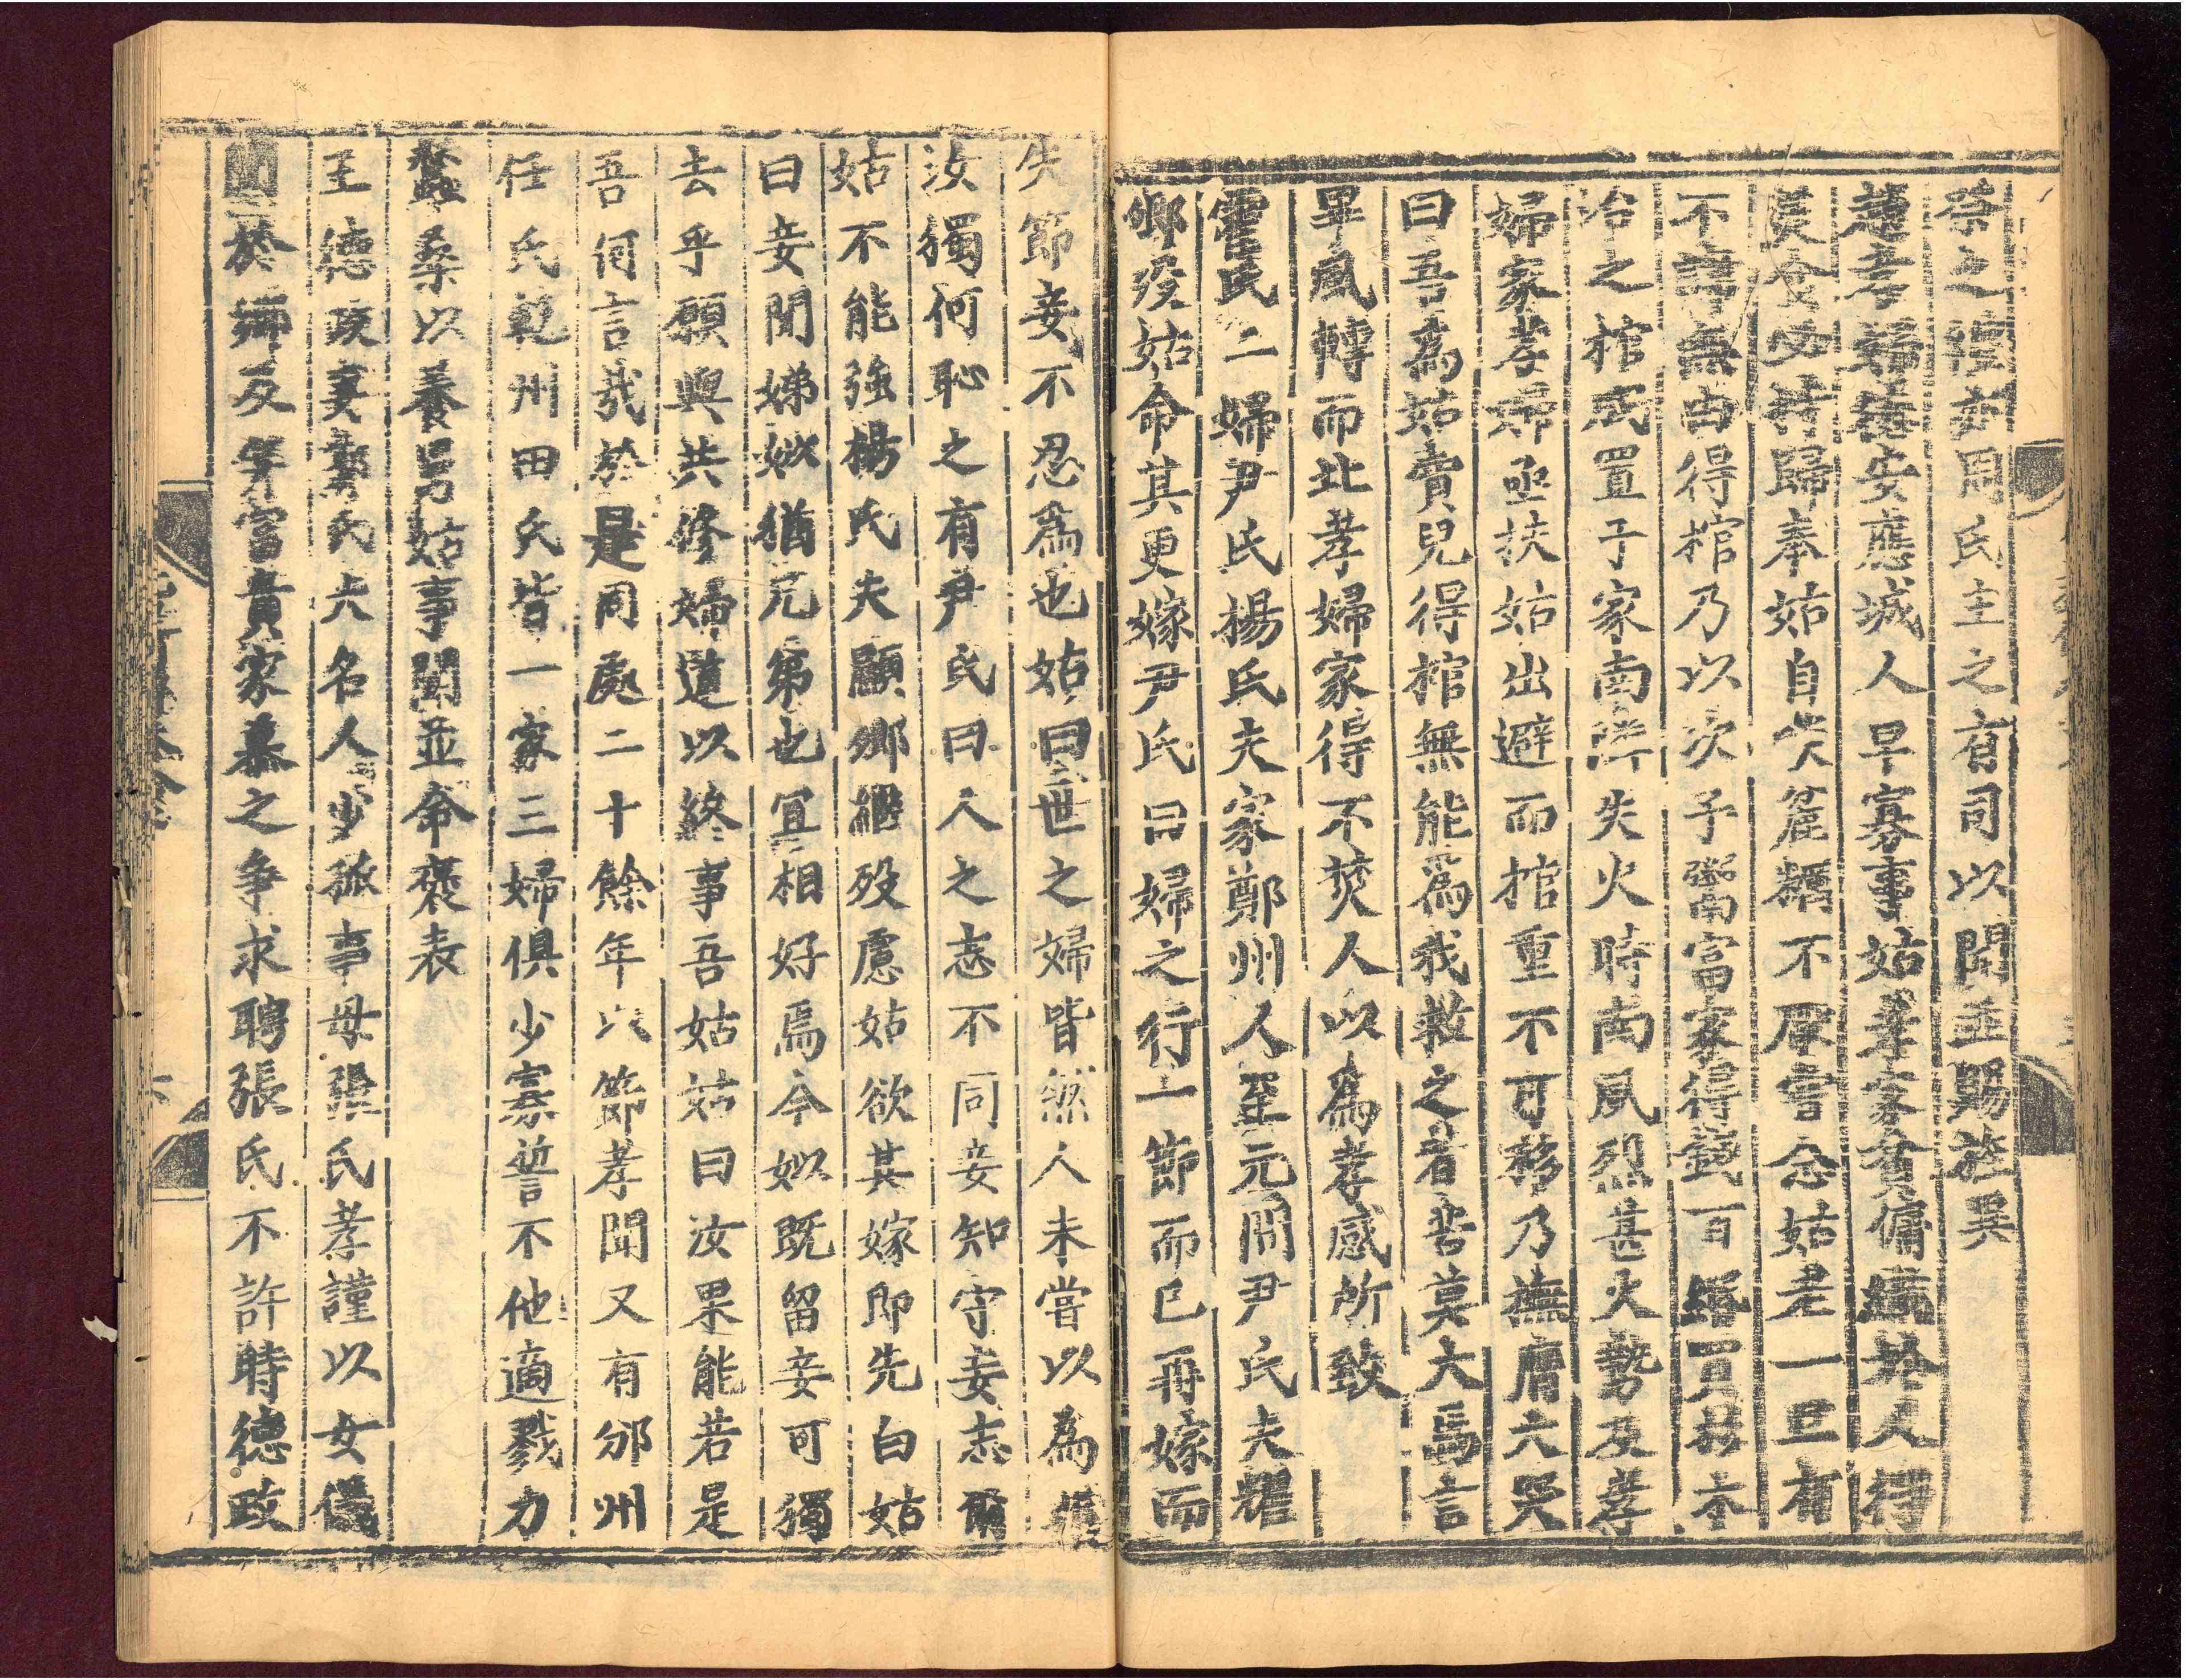 祭之禮割周氏主之有司以聞並賜旌異
趙孝婦德安應城人早寡事姑孝家貧傭織於人得
美食必持歸奉姑自啖麄糲不厭嘗念姑老一旦有
不諱無由得棺乃以次子鬻富家得錢百緡買杉木
治之棺成置于家南隣失火時南風烈甚火勢及孝
婦家孝婦亟扶姑出避而棺重不可移乃撫膺大哭
曰吾為姑賣兒得棺無能爲我救之者苦莫大焉言
畢風轉而北孝婦家得不焚人以為孝感所致
霍氏二婦尹氏楊氏夫家鄭州人至元間尹氏夫耀
卿歿姑命其更嫁尹氏曰婦之行一節而已再嫁而
失節妾不忍爲也姑曰世之婦皆然人未嘗以為非
汝獨何恥之有尹氏曰人之志不同妾知守妾志爾
姑不能強楊氏夫顯卿繼歿慮姑欲其嫁即先白姑
曰妾聞娣姒猶兄弟也宜相好焉今姒既留妾可獨
去乎願與共修婦道以終事吾姑姑曰汝果能若是
吾何言哉於是同處二十餘年以節孝聞又有邠州
任氏乾州田氏皆一家三婦俱少寡誓不他適戮力
蠶桑以養舅姑事聞並命褒表
王德政妻郭氏大名人少孤事母張氏孝謹以女儀
聞於鄉及笄富貴家慕之争求聘張氏不許時德政